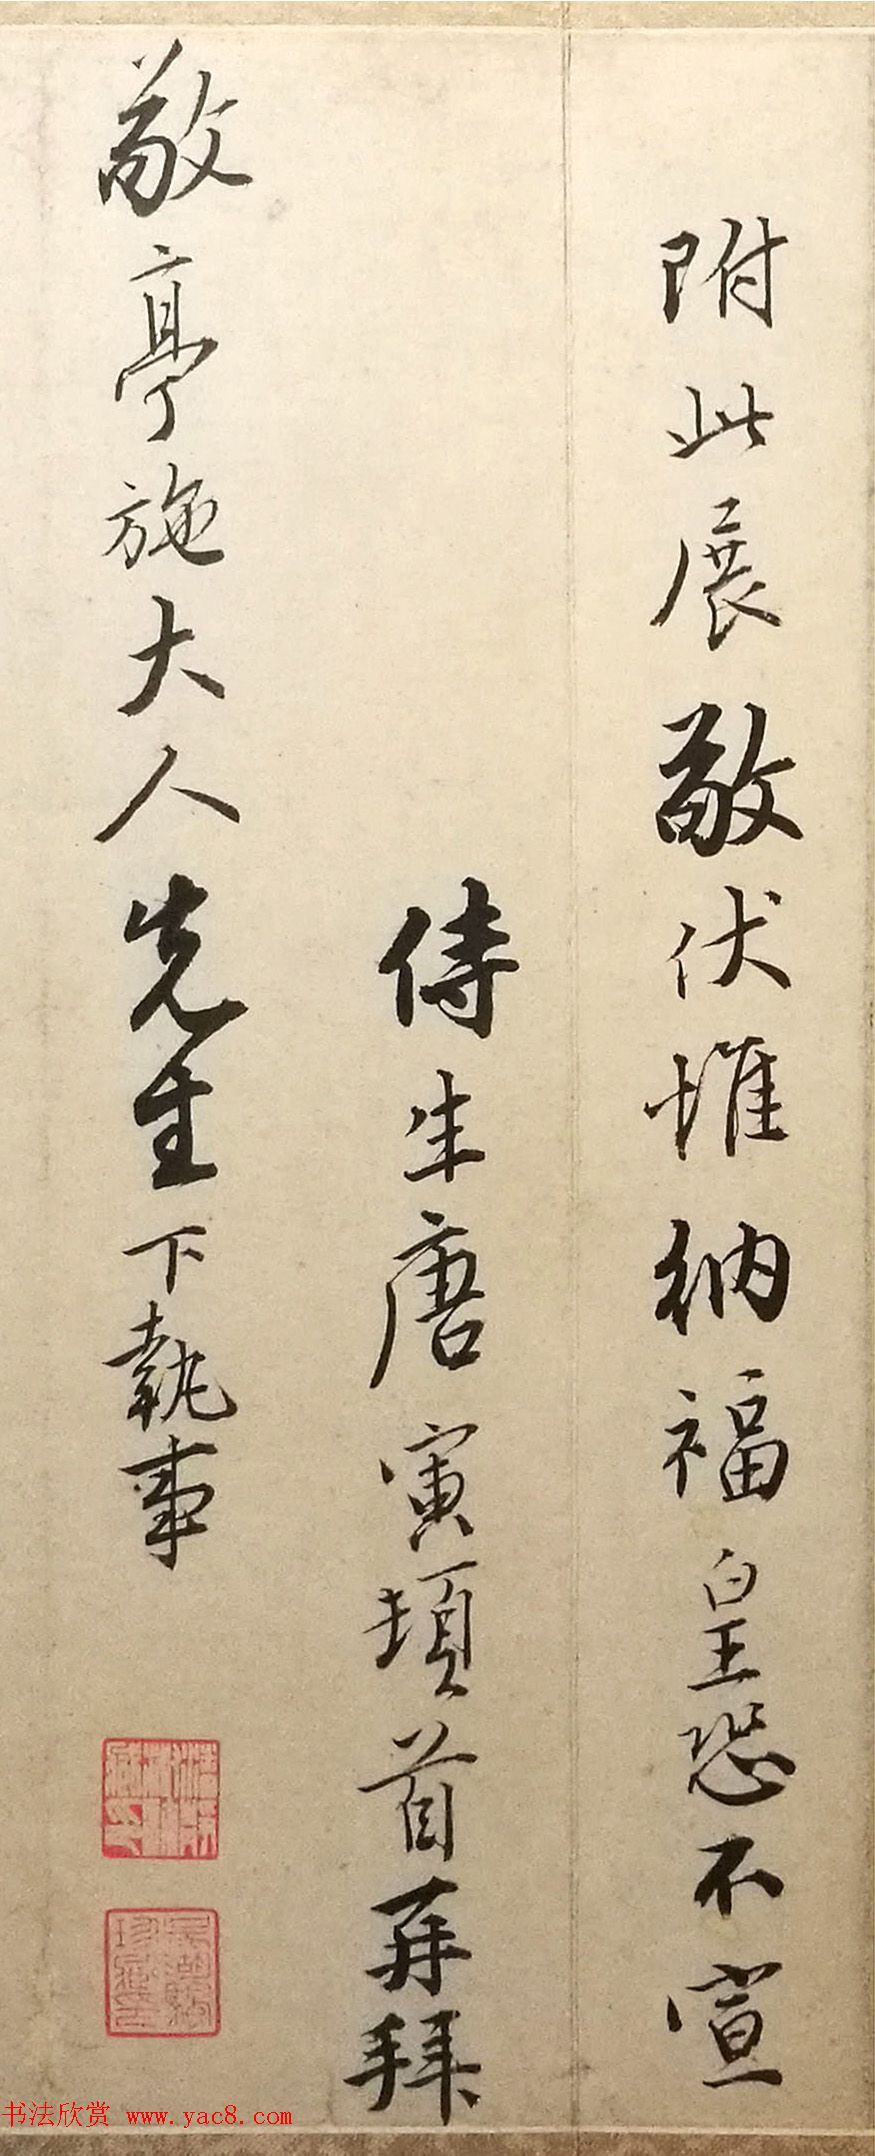 附此展敬伏惟納福皇恐不宣
侍生唐寅頓首再拜
敬亭施大人先生下執事
书法欣赏 www.yac8.com